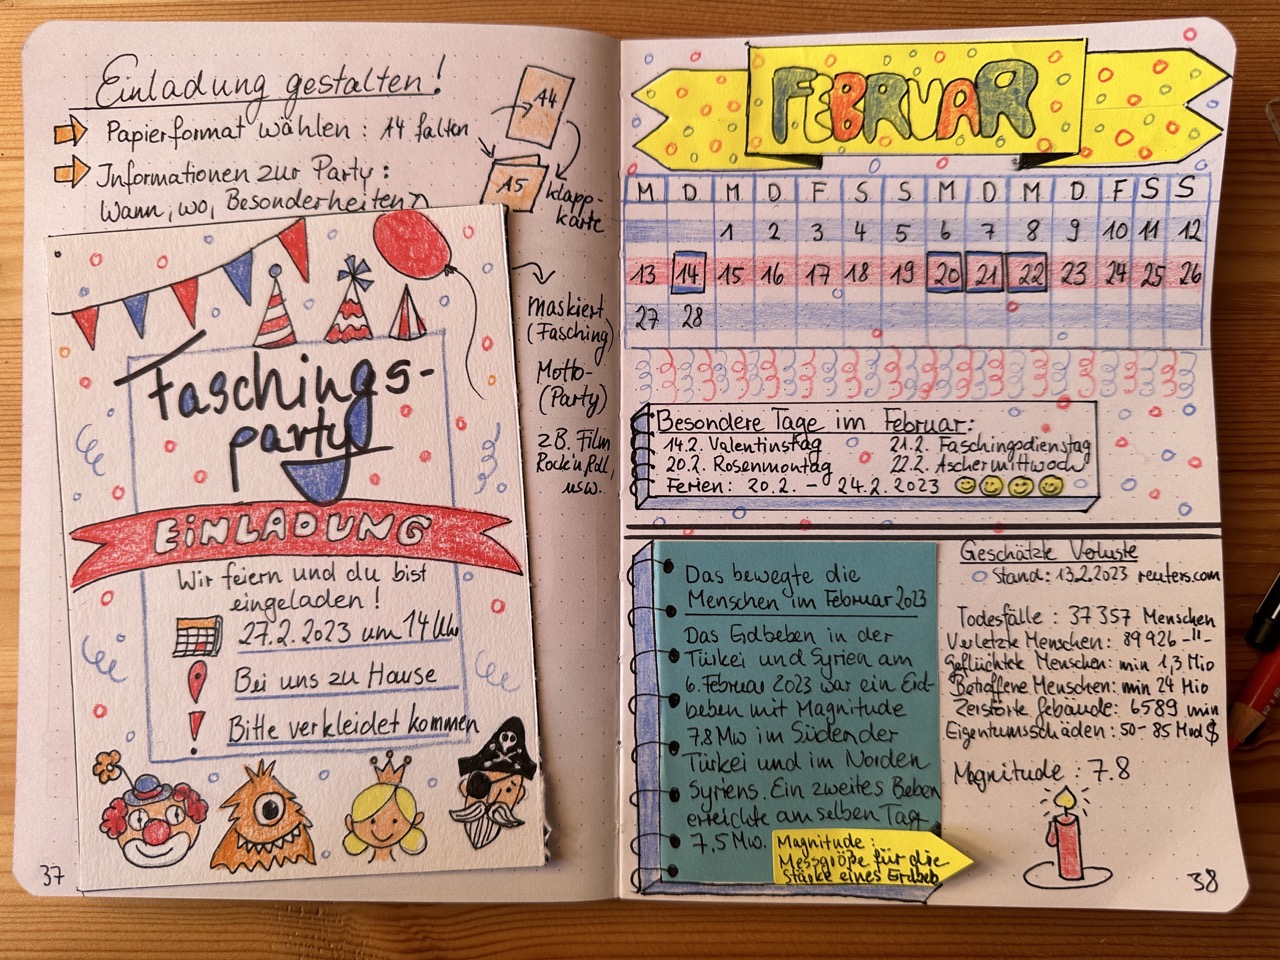 Einladung gestalten!
Papierformat wählen: A4 falten
Informationen zur Party:
Wann, wo, Besonderheiten
A4
A5
Klapp-
karte
maskiert
(Fasching)
Motto-
(Party)
z.B. Film
Rock'n Roll,
usw.
Faschings-
party
EINLADUNG
Wir feiern und du bist
eingeladen!
27.2.2023 um 14 Uhr
Bei uns zu Hause
Bitte verkleidet kommen
37
FEBRUAR
M D M D F S S M D M D F S S
1 2 3 4 5 6 7 8 9 10 11 12
13 14 15 16 17 18 19 20 21 22 23 24 25 26
27 28
Besondere Tage im Februar:
14.2. Valentinstag 21.2. Faschingsdienstag
20.2. Rosenmontag 22.2. Aschermittwoch
Ferien: 20.2. – 24.2.2023
Das bewegte die
Menschen im Februar 2023
Das Erdbeben in der
Türkei und Syrien am
6. Februar 2023 war ein Erd-
beben mit Magnitude
7.8 Mw im Süden der
Türkei und im Norden
Syriens. Ein zweites Beben
erreichte am selben Tag
7,5 Mw.
Magnitude:
Messgröße für die
Stärke eines Erdbeb.
Geschätzte Verluste
Stand: 13.2.2023 reuters.com
Todesfälle: 37 357 Menschen
Verletzte Menschen: 89 926 -"-
geflüchtete Menschen: min 1,3 Mio
Betroffene Menschen: min 24 Mio
Zerstörte Gebäude: 6589 min
Eigentumsschäden: 50-85 Mrd $
Magnitude: 7.8
38